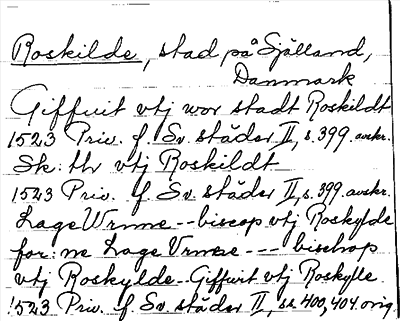 Roskilde, stad på Själland,
Danmark
Giffuit vtj wor stadt Roskildt
1523 Priv. f. Sv. städer II, s. 399. avskr.
Sk: thr vtj Roskildt
1523 Priv. f. Sv. städer II, s. 399. avskr.
Lage Wrnne -- biscop vtj Roskylde
for: ne Lage Vrnne --- bischop
vtj Roskylde - Giffuit vtj Roskylle
1523 Priv. f. Sv. städer II, ss. 400, 404. orig.